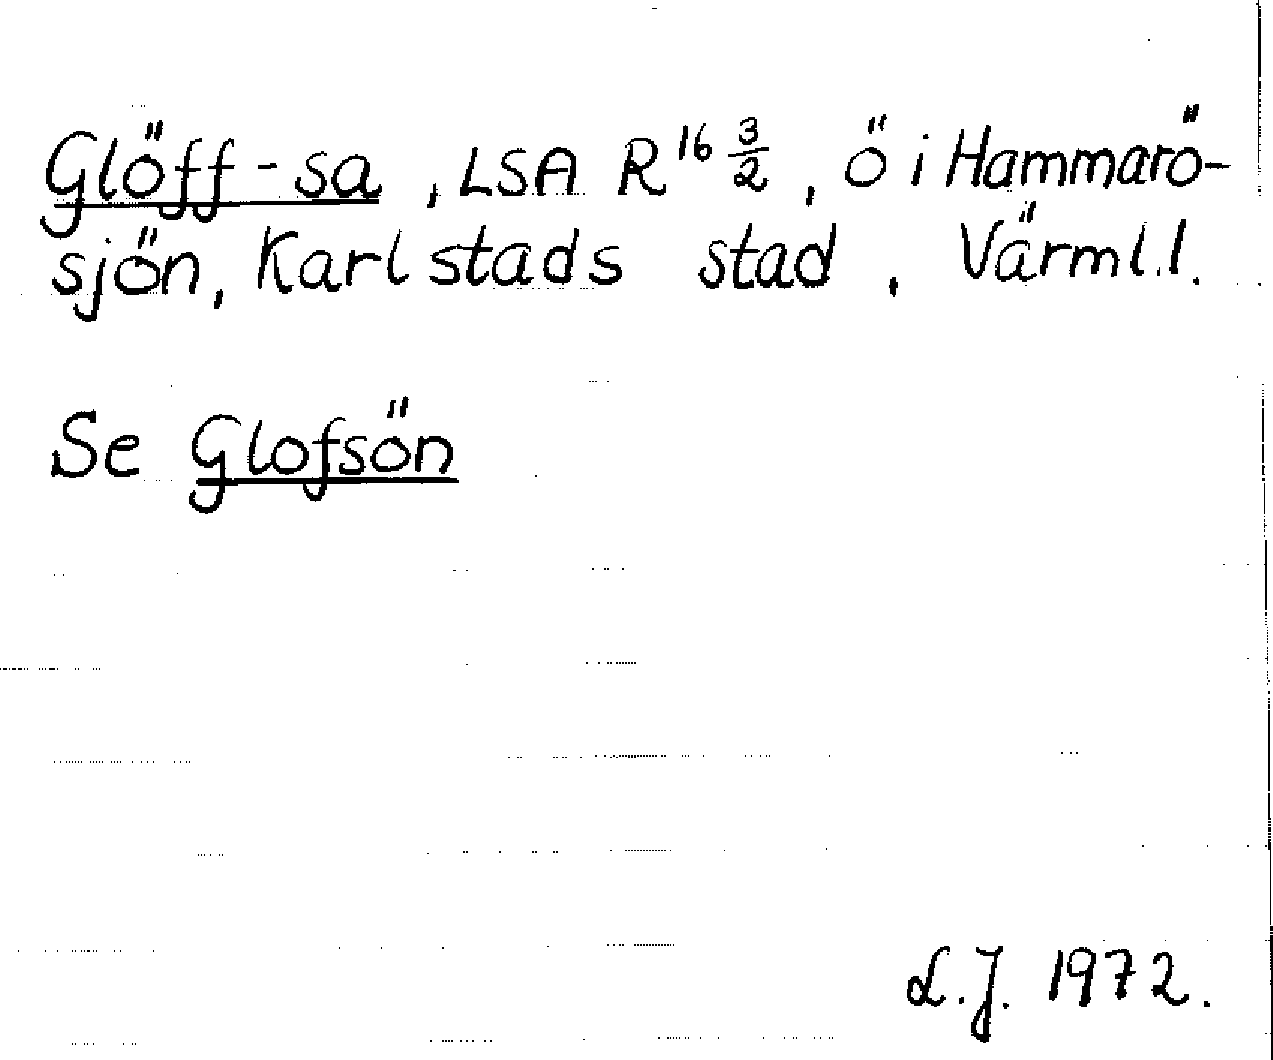 Glöff-sa, LSA R 16 3/2, ö i Hammarö-
sjön, Karlstads stad, Värml.l.
Se Glofsön
L.J. 1972.